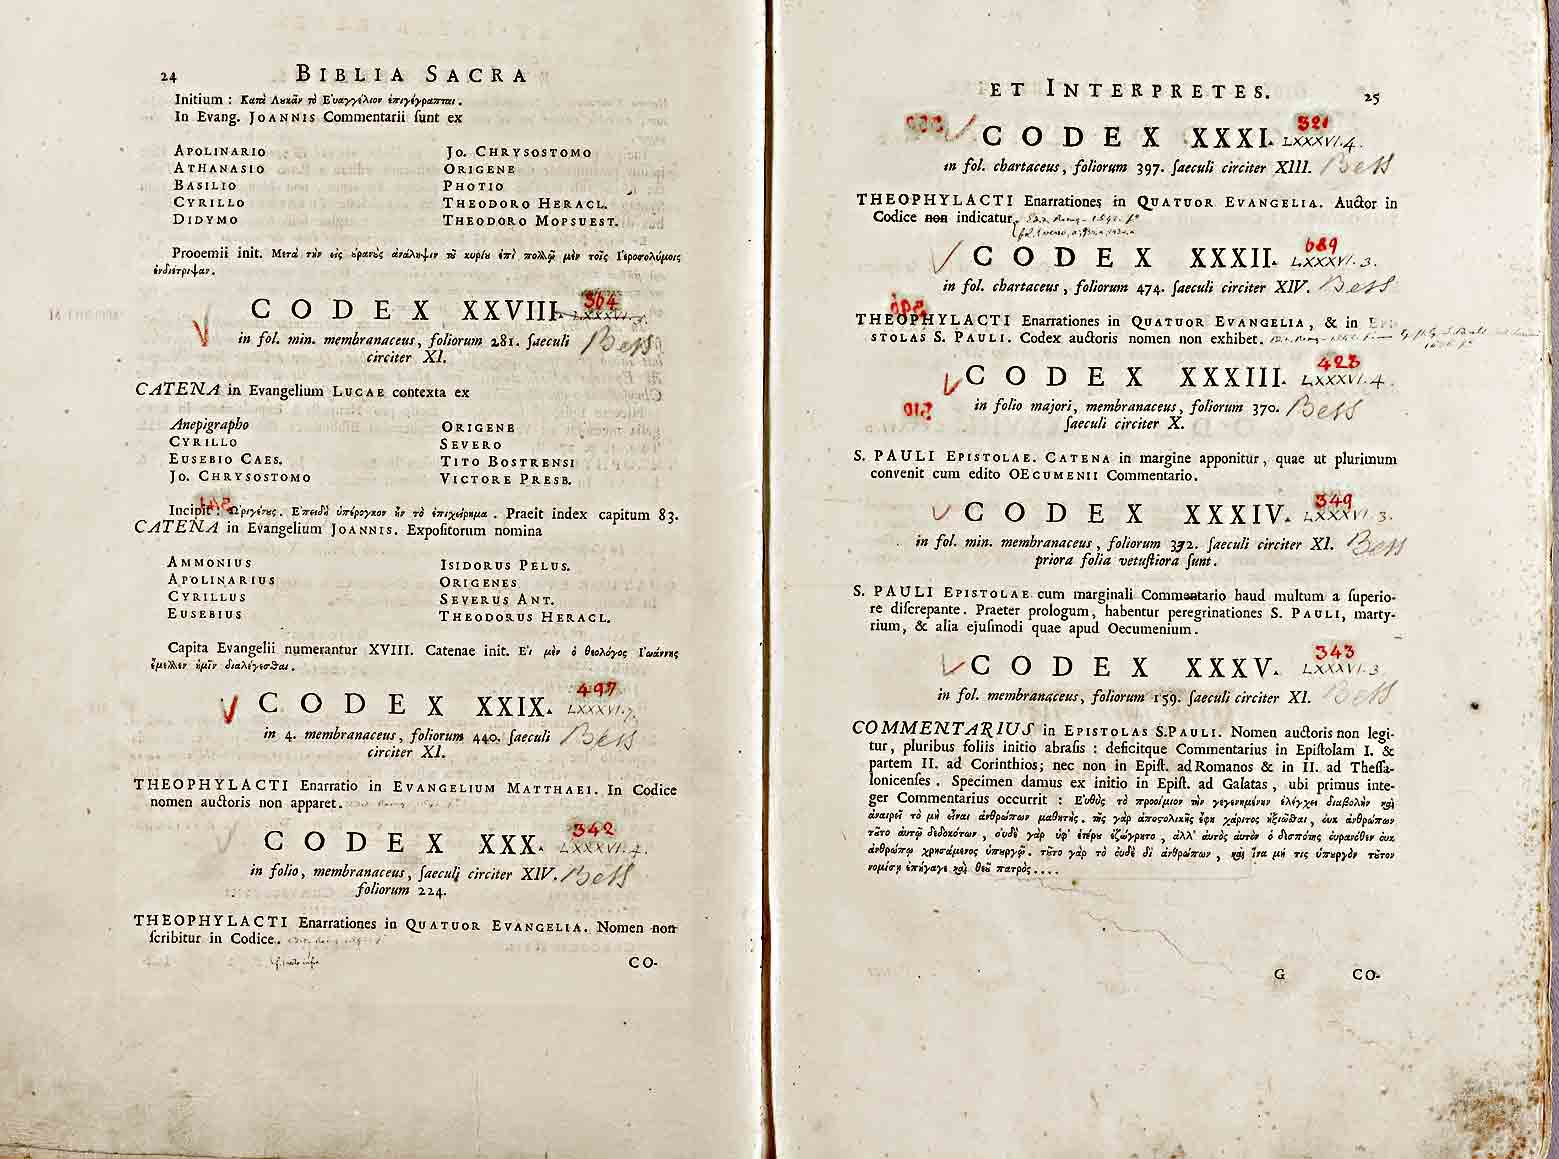 24 BIBLIA SACRA
Initium : Κατὰ Λυκᾶν τὸ Εὐαγγέλιον ἐπιγέγραπται.
In Evang. JOANNIS Commentarii ſunt ex
APOLINARIO JO. CHRYSOSTOMO
ATHANASIO ORIGENE
BASILIO PHOTIO
CYRILLO THEODORO HERACL.
DIDYMO THEODORO MOPSUEST.
Prooemii init. Μετὰ τὴν εἰς ὐρανὺς ἀνάληψιν τῦ κυρίυ ἐπὶ πολλῷ μὲν τοῖς Ἱεροσολύμοις
ἐνδιέτριψαν.
364
CODEX XXVIII. LXXXVI.5.
in fol. min. membranaceus, foliorum 281. ſaeculi Bess
circiter XI.
CATENA in Evangelium LUCAE contexta ex
Anepigrapho ORIGENE
CYRILLO SEVERO
EUSEBIO CAES. TITO BOSTRENSI
JO. CHRYSOSTOMO VICTORE PRESB.
Incipit: Ὠριγένυς. Ἐπειδὴ ὑπέρογκον ἦν τὸ ἐπιχείρημα. Praeit index capitum 83.
CATENA in Evangelium JOANNIS. Expoſitorum nomina
AMMONIUS ISIDORUS PELUS.
APOLINARIUS ORIGENES
CYRILLUS SEVERUS ANT.
EUSEBIUS THEODORUS HERACL.
Capita Evangelii numerantur XVIII. Catenae init. Εἰ μὲν ὁ θεολόγος Ἰωάννης
ἔμελλεν ἡμῖν διαλέγεσθαι.
497
CODEX XXIX. LXXXVI.7.
in 4. membranaceus, foliorum 440. ſaeculi Bess
circiter XI.
THEOPHYLACTI Enarratio in EVANGELIUM MATTHAEI. In Codice
nomen auctoris non apparet.
342
CODEX XXX. LXXXVI.4.
in folio, membranaceus, ſaeculi circiter XIV. Bess
foliorum 224.
THEOPHYLACTI Enarrationes in QUATUOR EVANGELIA. Nomen non
ſcribitur in Codice.
CO-
ET INTERPRETES. 25
321
CODEX XXXI. LXXXVI.4.
in fol. chartaceus, foliorum 397. ſaeculi circiter XIII. Bess
THEOPHYLACTI Enarrationes in QUATUOR EVANGELIA. Auctor in
Codice non indicatur.
689
CODEX XXXII. LXXXVI.3.
in fol. chartaceus, foliorum 474. ſaeculi circiter XIV. Bess
THEOPHYLACTI Enarrationes in QUATUOR EVANGELIA, & in EPI-
STOLAS S. PAULI. Codex auctoris nomen non exhibet.
423
CODEX XXXIII. LXXXVI.4.
in folio majori, membranaceus, foliorum 370. Bess
ſaeculi circiter X.
S. PAULI EPISTOLAE. CATENA in margine apponitur, quae ut plurimum
convenit cum edito OECUMENII Commentario.
349
CODEX XXXIV. LXXXVI.3.
in fol. min. membranaceus, foliorum 372. ſaeculi circiter XI. Bess
priora folia vetuſtiora ſunt.
S. PAULI EPISTOLAE cum marginali Commentario haud multum a ſuperio-
re diſcrepante. Praeter prologum, habentur peregrinationes S. PAULI, marty-
rium, & alia ejuſmodi quae apud Oecumenium.
343
CODEX XXXV. LXXXVI.3
in fol. membranaceus, foliorum 159. ſaeculi circiter XI. Bess
COMMENTARIUS in EPISTOLAS S.PAULI. Nomen auctoris non legi-
tur, pluribus foliis initio abraſis : deficitque Commentarius in Epiſtolam I. &
partem II. ad Corinthios; nec non in Epiſt. ad Romanos & in II. ad Theſſa-
lonicenſes. Specimen damus ex initio in Epiſt. ad Galatas, ubi primus inte-
ger Commentarius occurrit : Εὐθὺς τὸ προοίμιον τὴν γεγενημένην ἐλέγχει διαβολὴν καὶ
ἀναιρεῖ τὸ μὴ εἶναι ἀνθρώπων μαθητής. τῆς γὰρ ἀποστολικῆς ἔφη χάριτος ἠξιῶσθαι, ὐκ ἀνθρώπων
τῦτο αὐτῷ δεδωκότων, ὐδὲ γὰρ ὑφ' ἑτέρυ ἐζώγρητο, ἀλλ' αὐτὸς αὐτὸν ὁ δεσπότης ὐρανόθεν ὐκ
ἀνθρώπῳ χρησάμενος ὑπυργῷ. τῦτο γὰρ τὸ ὐδὲ δι' ἀνθρώπων, καὶ ἵνα μή τις ὑπυργὸν τῦτον
νομίσῃ ἐπήγαγε καὶ θεῦ πατρός....
G CO-